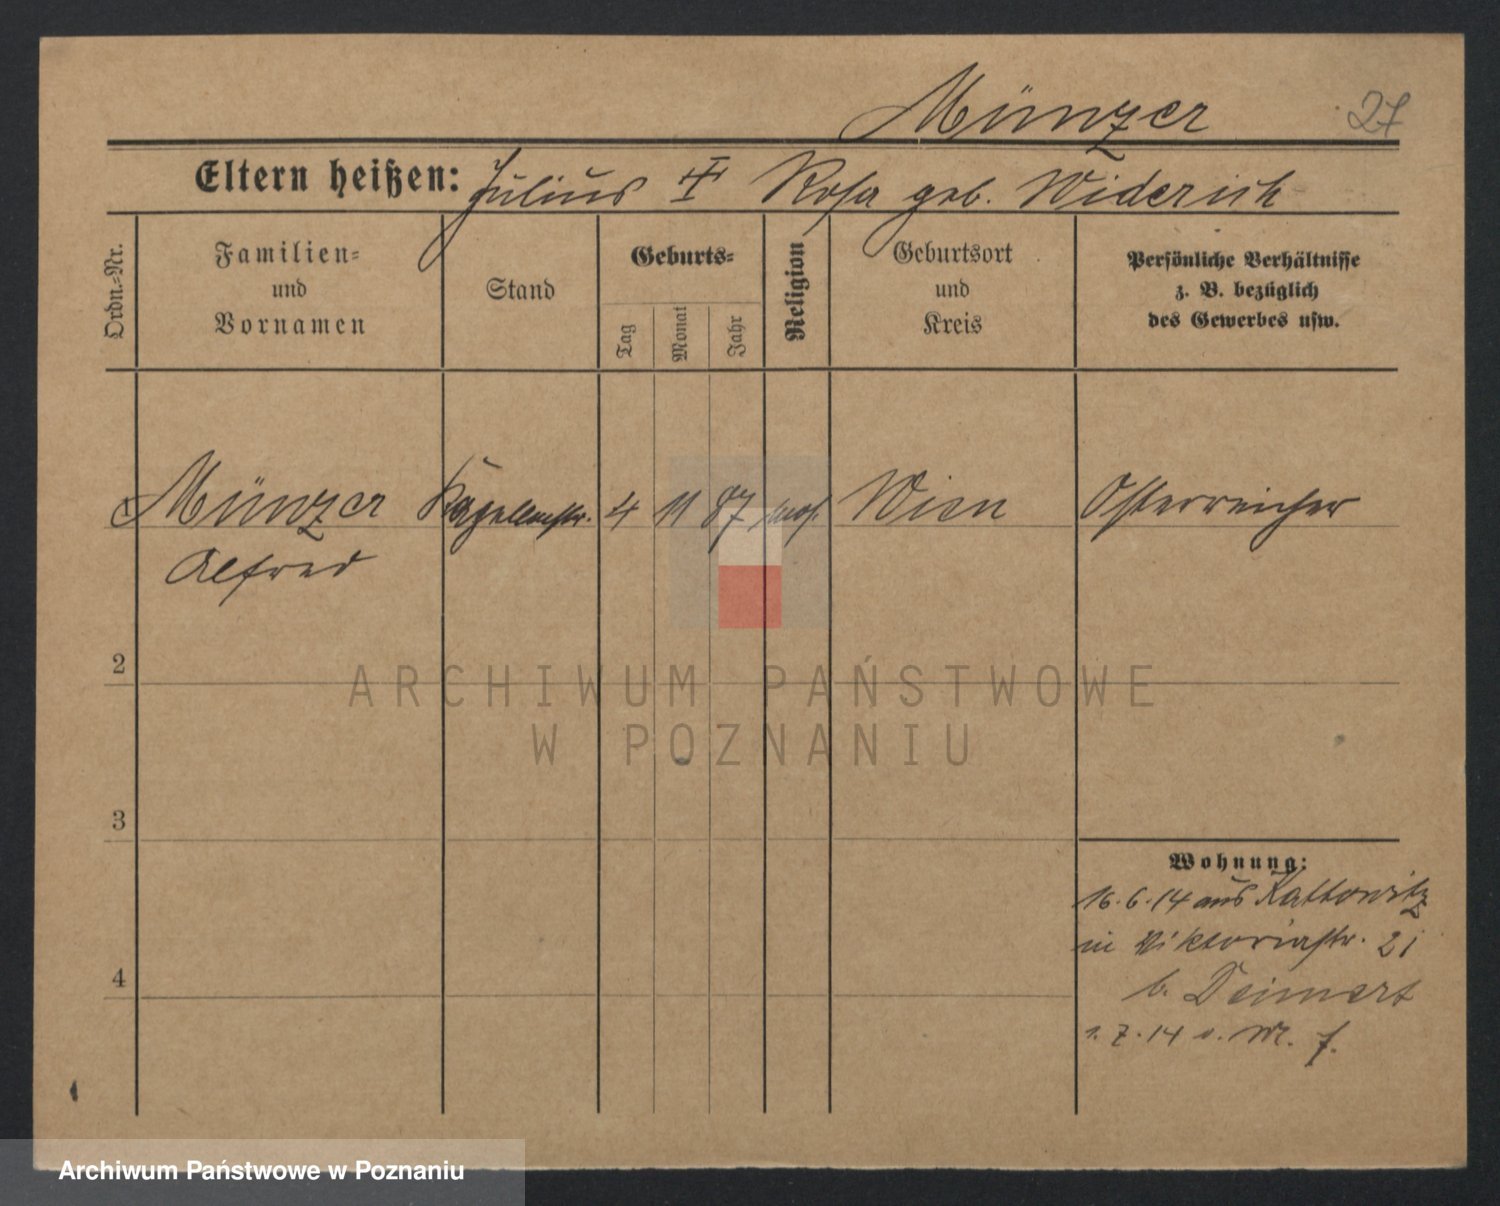 Münzer
27
Eltern heißen: Julius Rosa geb. Widerich
Ordn.=Nr.
Familien=
und
Vornamen
Stand
Geburts=
Tag
Monat
Jahr
Religion
Geburtsort
und
Kreis
Persönliche Verhältnisse
z. B. bezüglich
des Gewerbes usw.
Münzer Kapellmstr. 4 11 87 mos. Wien Österreicher
Alfred
2
3
4
Wohnung:
16.6.14 aus Kattowitz
in Viktoriastr. 21
b. Deinert
1.7.14
ARCHIWUM PAŃSTWOWE
W POZNANIU
Archiwum Państwowe w Poznaniu